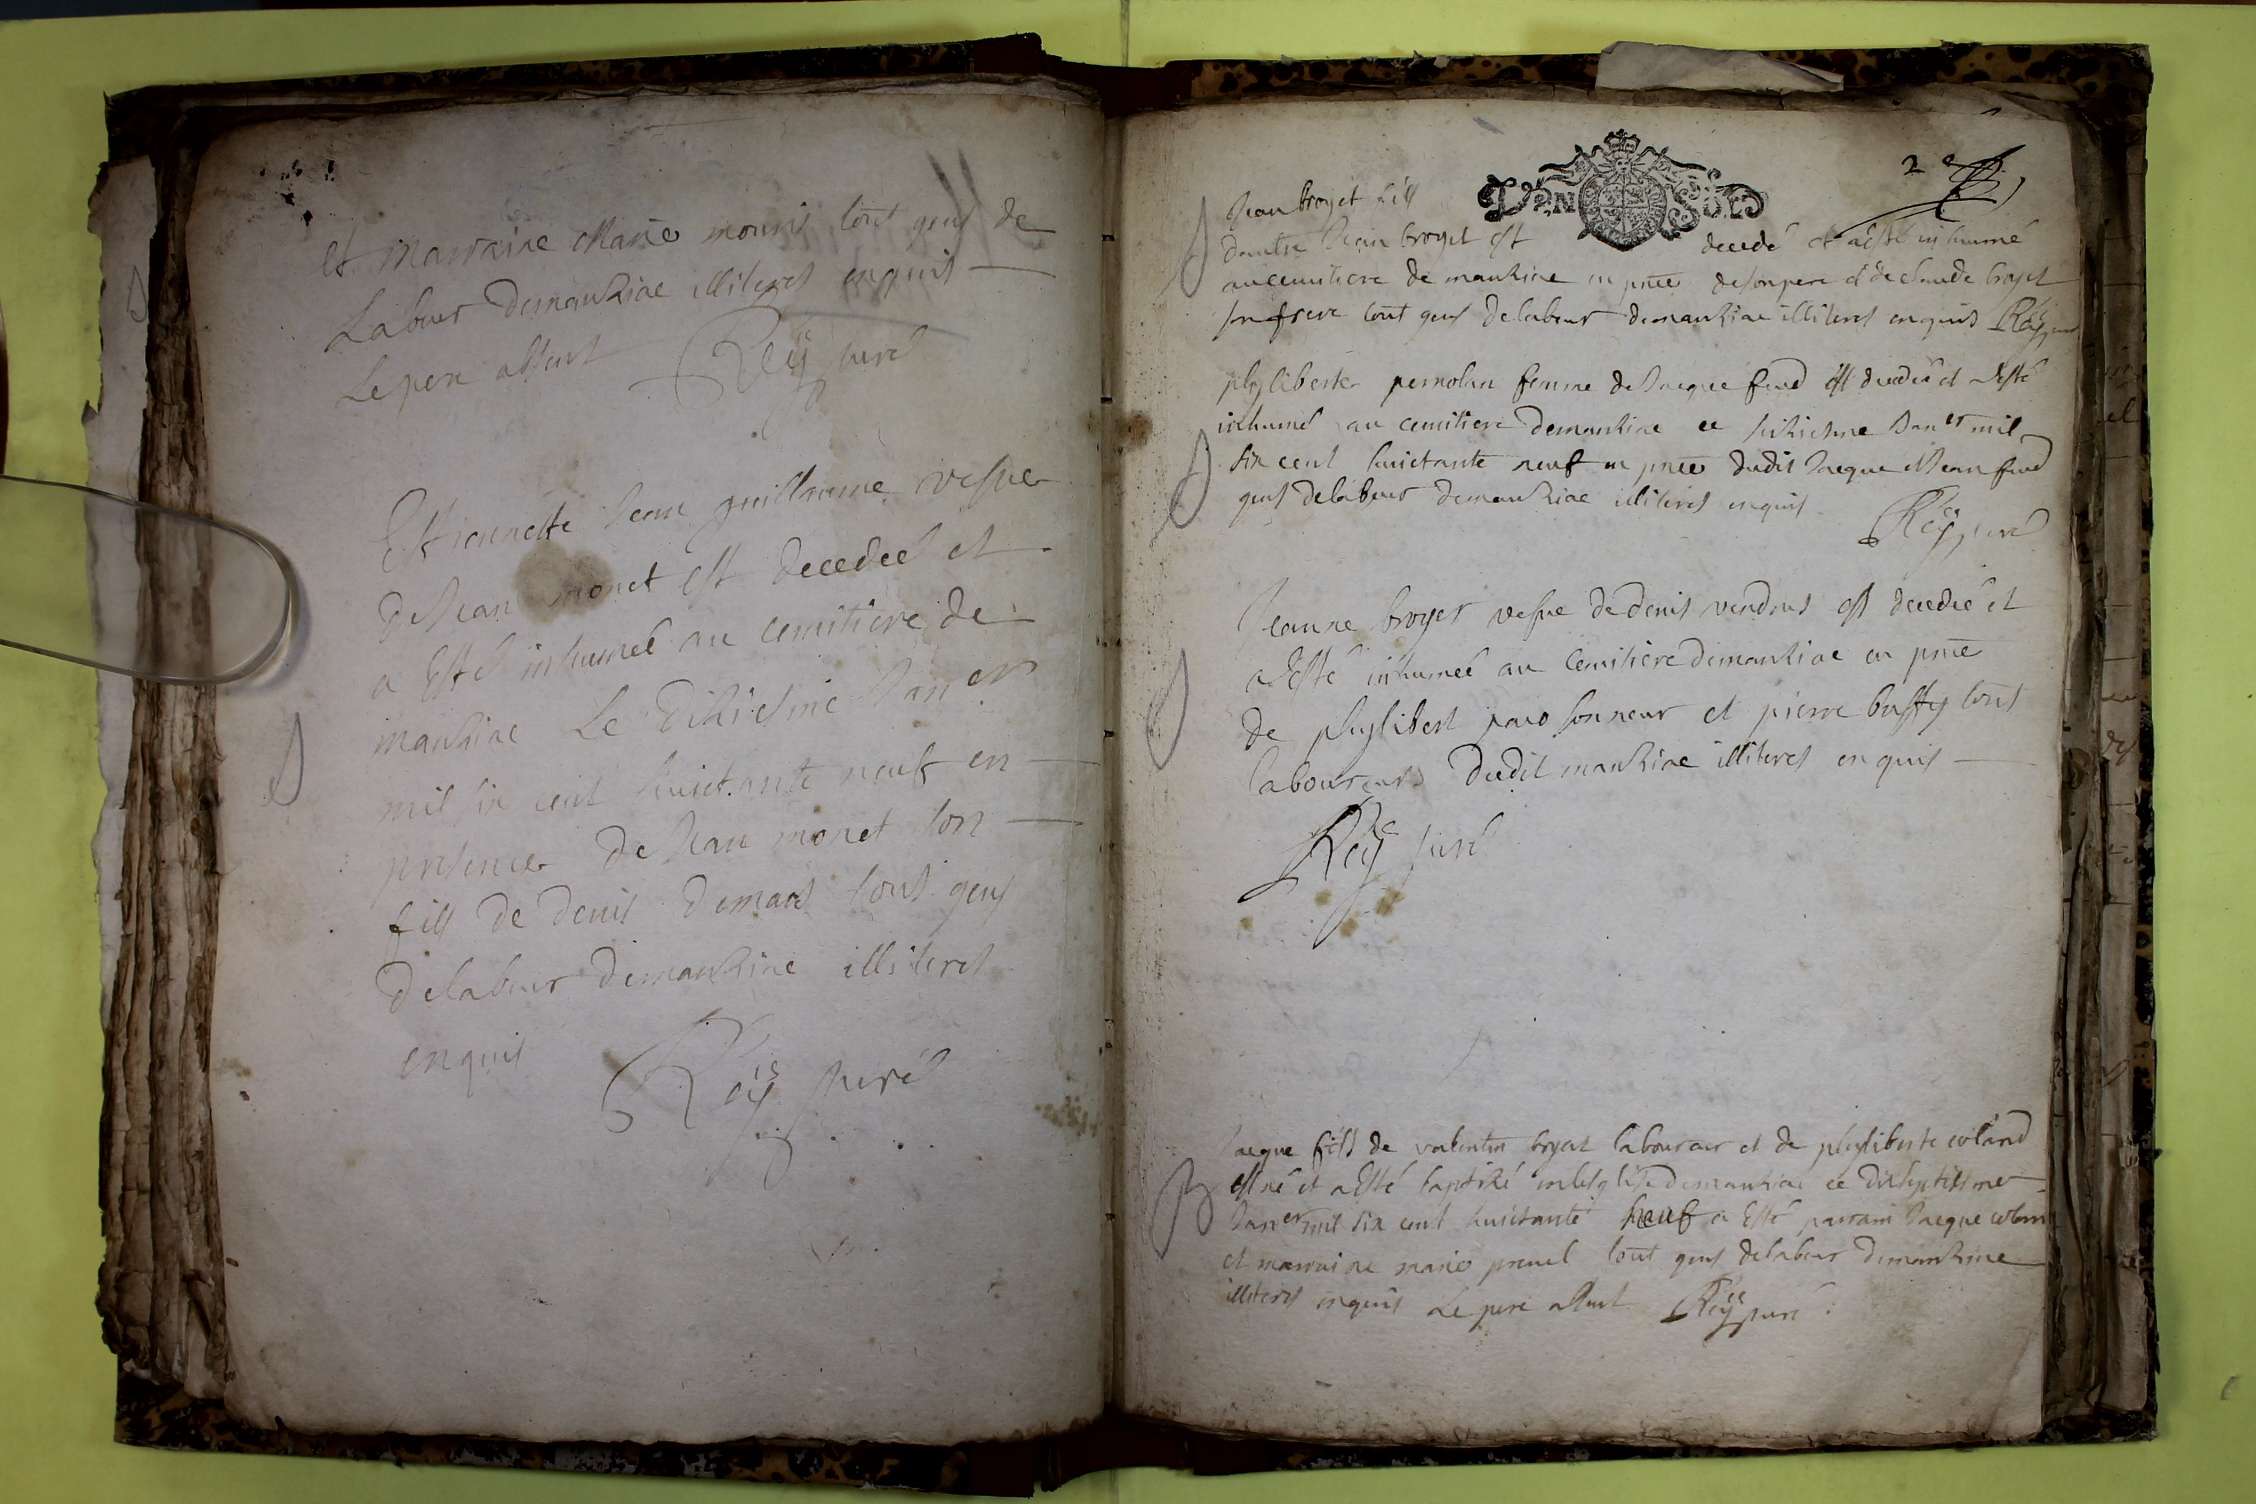 et marraine Marie monin tout gens de
Labeur demanziac illiteres enquis
Le pere absent Reÿ curé
Estiennette Jean guillaume vefve
de Jean monet est decedeé et
a Esté inhumeé au cemitiere de
manziac Le dixiesme Jan er
mil six cent huictante neuf en
presence de Jean monet son
fils de denis demans tout gens
delabeur demanziac illiteres
enquis Reÿ curé
2e
Jean broyet fils
dautre Jean broyet est decedé et aesté inhumé
aucemitiere de manziac en pnce desonpere et de claude broyet
son frere tout gens delabeur demanziac illiteres enquis Reÿ
phyliberte pernolin femme deJacque fend est decedé et aesté
inhumé au cemitiere demanziac ce seiziesme Jan er mil
six cent huictante neuf en pnce dudit Jacque et Jean fend
gens delabeur demanziac illiteres enquis
Reÿ curé
Jeanne broyer vefve de denis vendens est decedeé et
a esté inhumeé au cemitiere demanziac en pnce
de phylibert paro sonneur et pierre buffy tous
laboureurs dudit manziac illiteres enquis
Reÿ curé
Jacque fils de valentin broyet laboureur et de phyliberte coland
est né et aesté baptizé en lesglise demanziac ce dixseptiesme
Jan er mil six cent huictante neuf a Esté parrain Jacque
et marraine marie prevel tout gens delabeur demanziac
illiteres enquis Le pere absent Reÿ curé